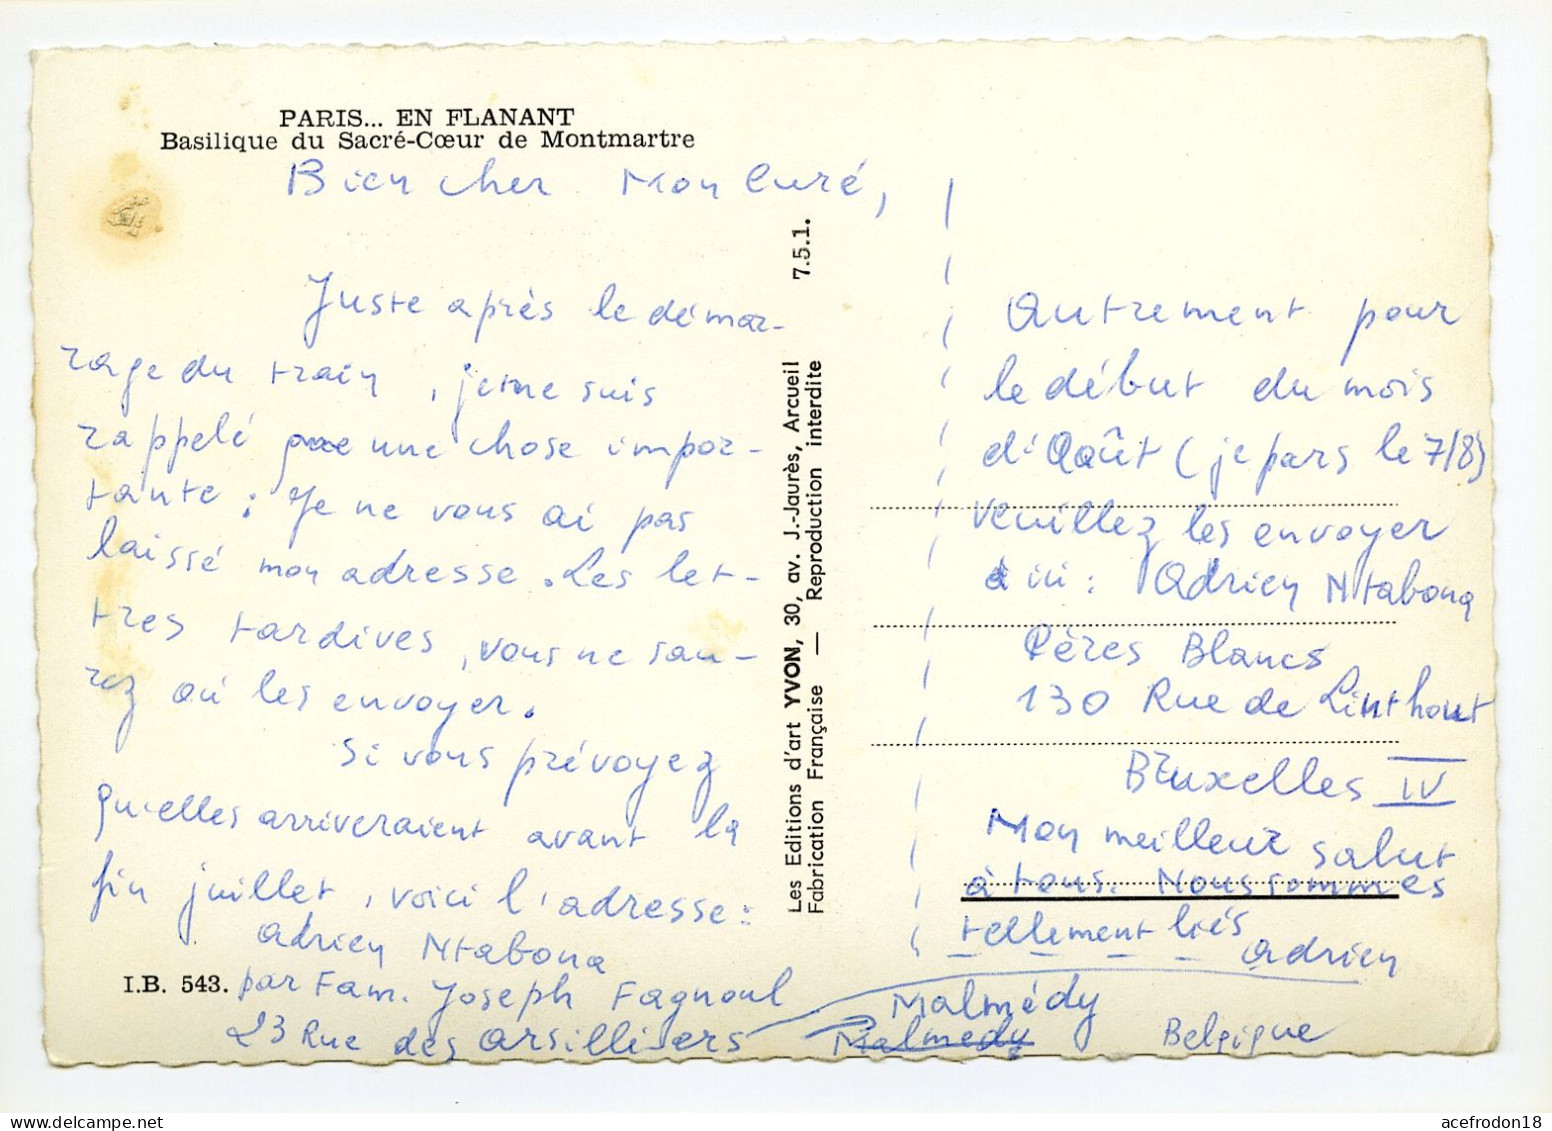 PARIS... EN FLANANT
Basilique du Sacré-Cœur de Montmartre
Bien cher Mon Curé,
Juste après le démar-
rage du train, je me suis
rappelé une chose impor-
tante : Je ne vous ai pas
laissé mon adresse. Les let-
tres tardives, vous ne sau-
rez où les envoyer.
Si vous prévoyez
qu'elles arriveraient avant la
fin juillet, voici l'adresse :
Adrien Ntabona
par Fam. Joseph Fagnoul
23 Rue des Arsilliers
Malmédy
Malmedy
Belgique
I.B. 543.
Les Editions d'art YVON, 30, av. J.-Jaurès, Arcueil 7.5.1.
Fabrication Française — Reproduction interdite
Autrement pour
le début du mois
d'Août (je pars le 7/8)
veuillez les envoyer
ici : Adrien Ntabona
Pères Blancs
130 Rue de Linthout
Bruxelles IV
Mon meilleur salut
à tous. Nous sommes
tellement liés
Adrien
acefrodon18